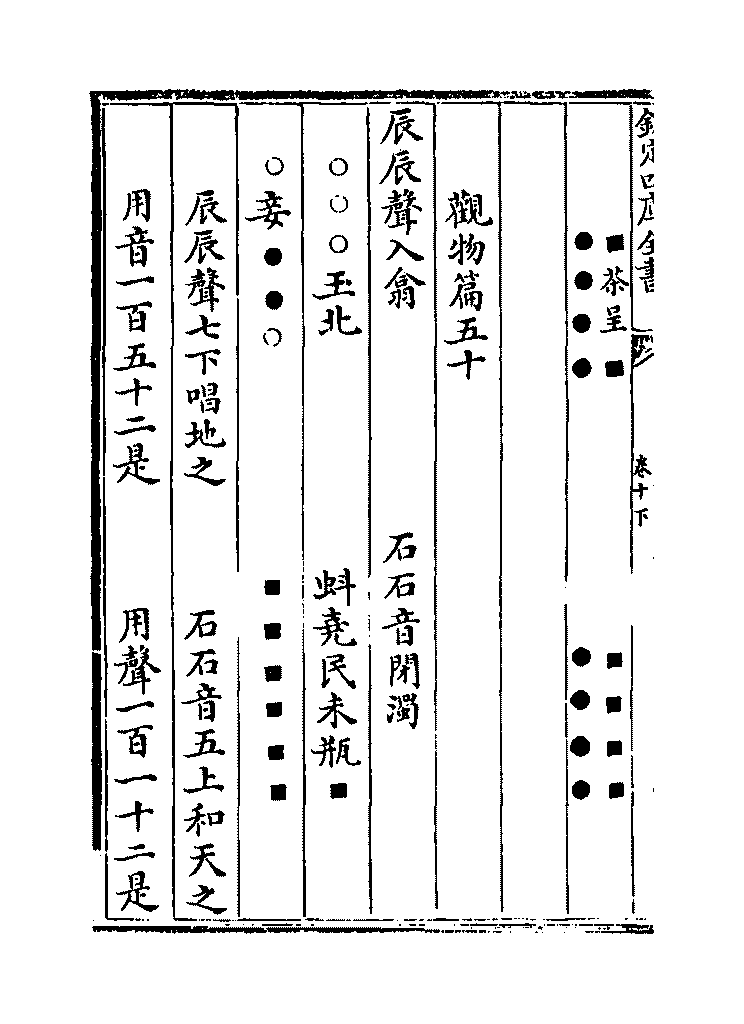 欽定四庫全書 卷十下
■茶呈■ ■■■■
●●●● ●●●●
觀物篇五十
辰辰聲入翕 石石音閉濁
○○○玉北 蚪堯民未瓶■
○妾●●○ ■■■■■■
辰辰聲七下唱地之 石石音五上和天之
用音一百五十二是 用聲一百一十二是